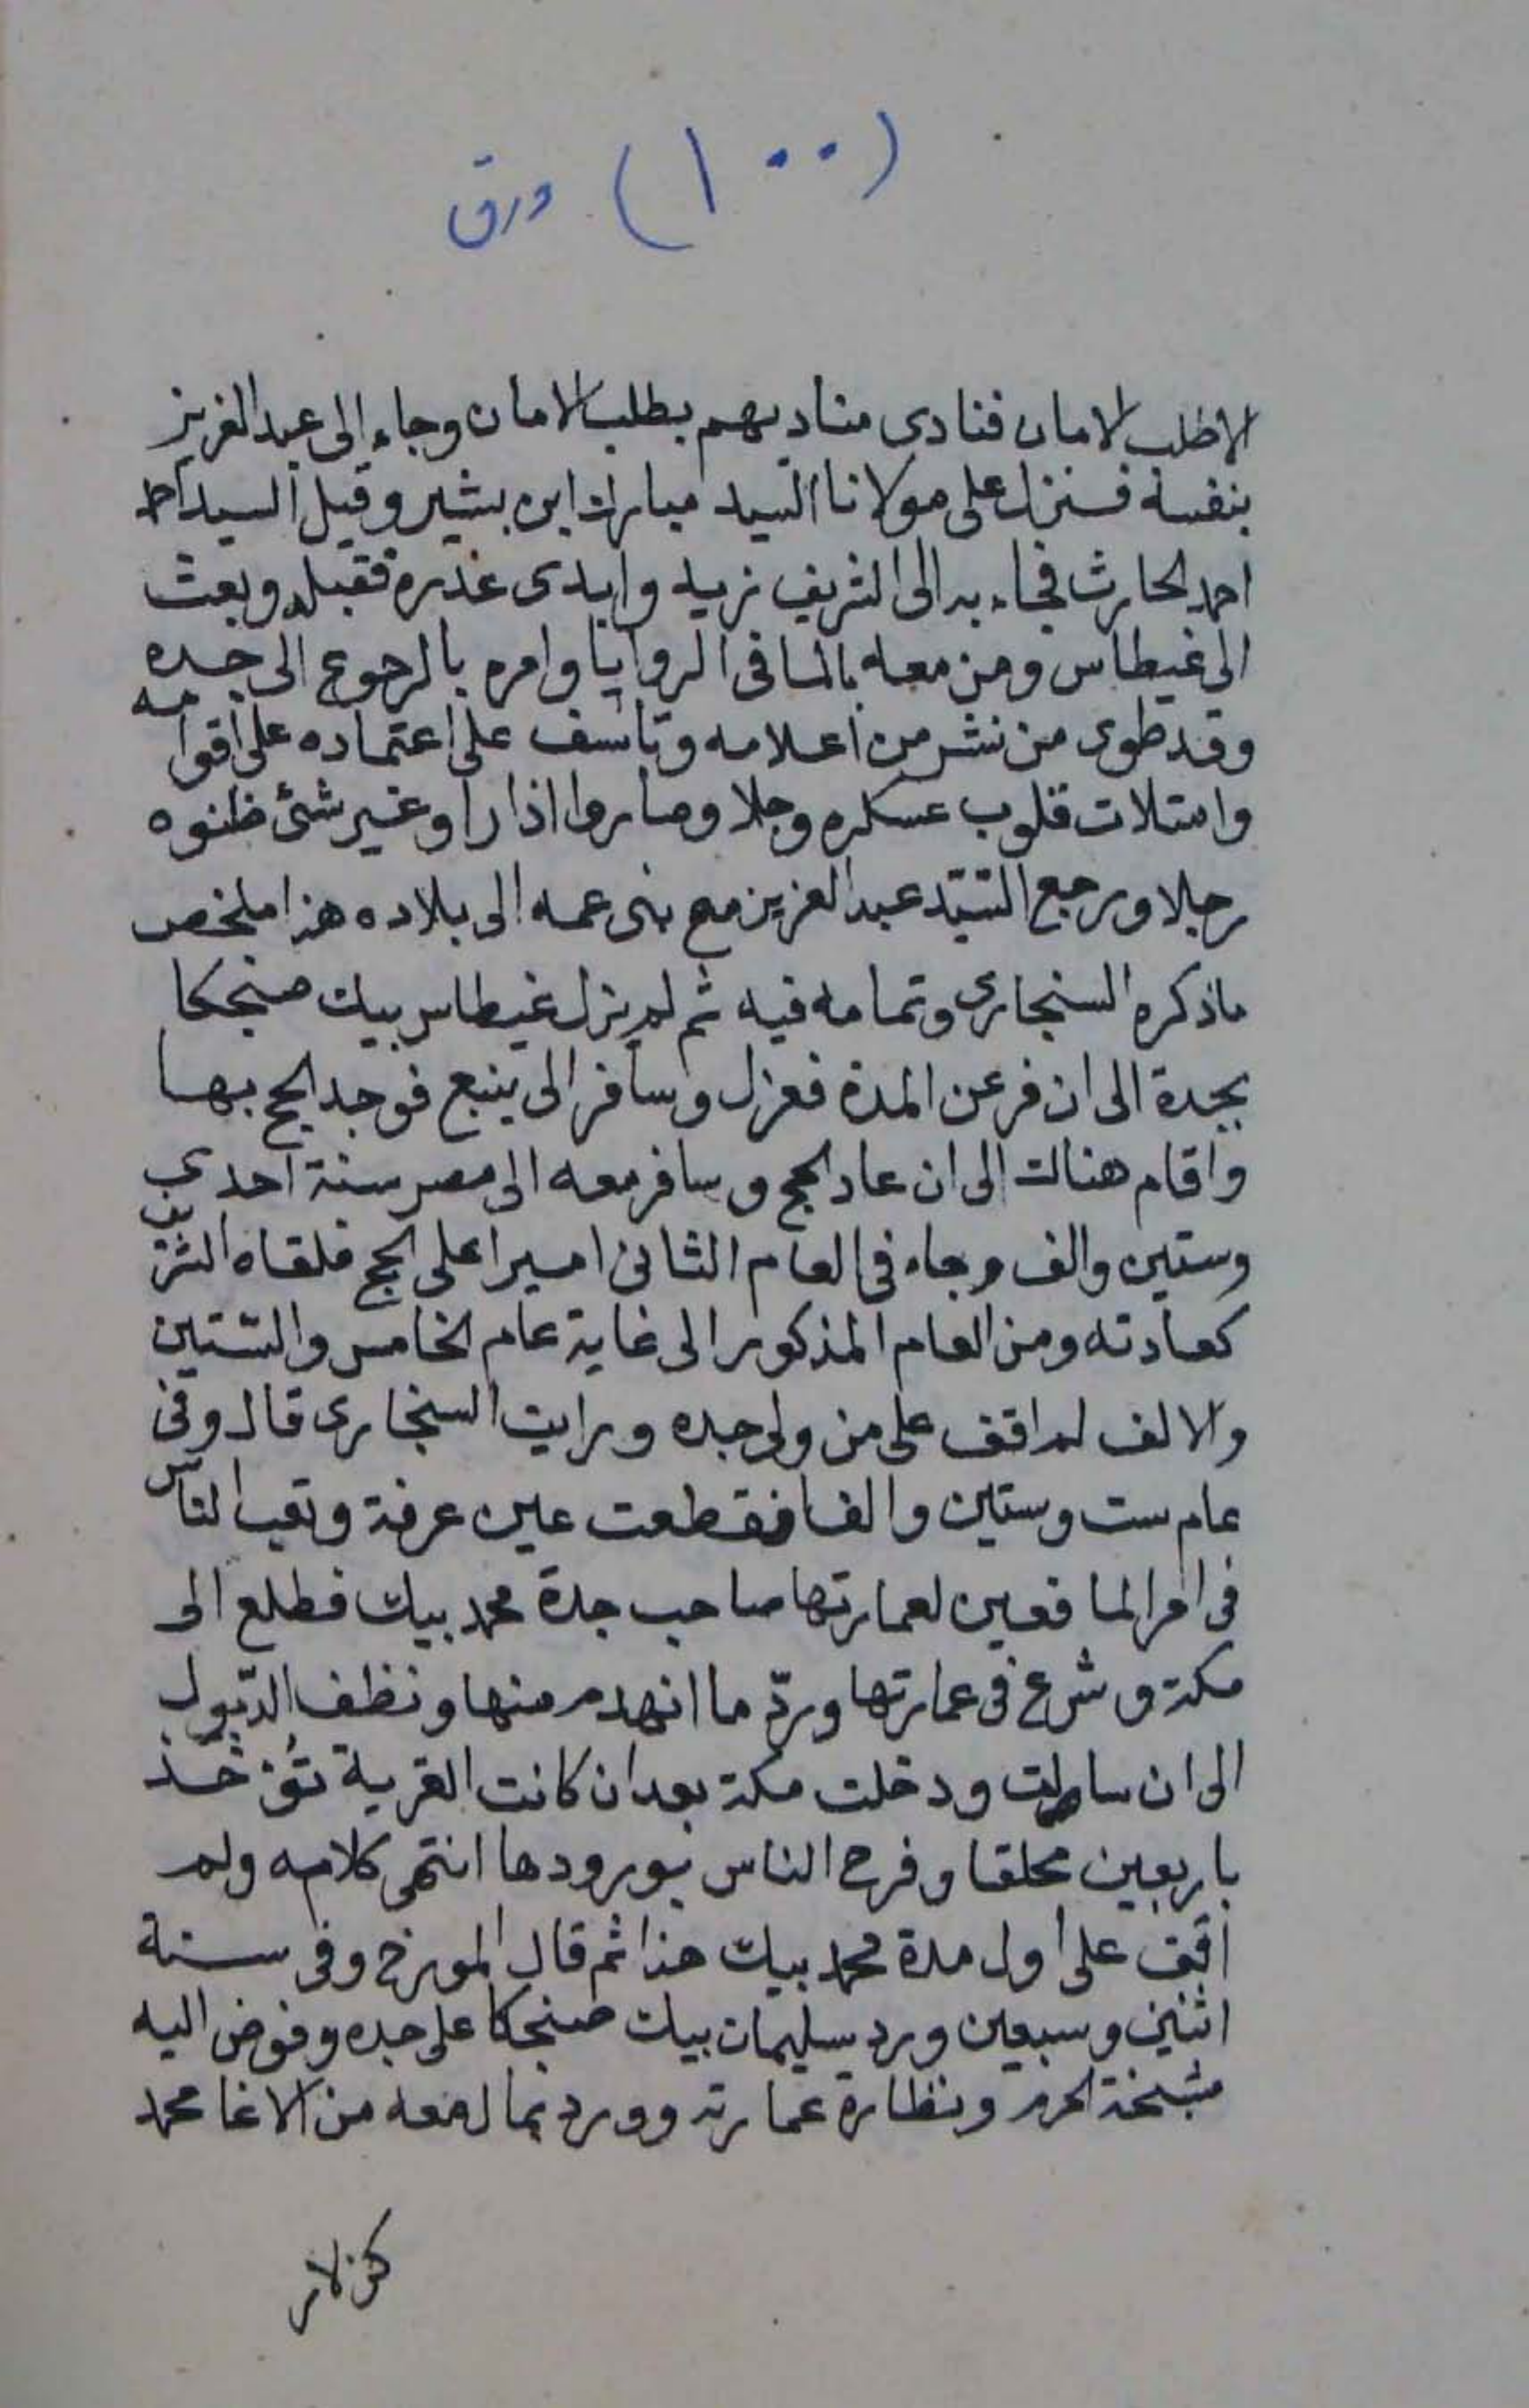 (١٠٠) ورق
الا طلب الامان فنادى مناديهم بطلب الامان وجاء الى عبد العزيز
بنفسه فنزل على مولانا السيد مبارك ابن بشير وقيل السيد احمد
احمد الحارث فجاء به الى الشريف زيد وابدى عذره فقبله وبعث
الى غيطاس ومن معه بالماء فى الروايا وامره بالرجوع الى جده
وقد طوى من نشر من اعلامه وتاسف على اعتماده على اقوامه
وامتلات قلوب عسكره وجلا وصاروا اذا راوغير شئ ظنوه
رجلا ورجع السيد عبد العزيز مع بنى عمه الى بلاده هذا ملخص
ماذكره السنجارى وتمامه فيه ثم لم يزل غيطاس بيك صنجكا
بجدة الى ان فرعن المدة فعزل وسافر الى ينبع فوجد الحج بها
واقام هناك الى ان عاد الحج وسافر معه الى مصر سنة احدى
وستين والف وجاء فى العام الثانى اميرا على الحج فلقاه الشريف
كعادته ومن العام المذكور الى غاية عام الخامس والستين
والالف لم اقف على من ولى جده ورايت السنجارى قال وفى
عام ست وستين والف انقطعت عين عرفة وتعب الناس
فى امر الما فعين لعمارتها صاحب جدة محمد بيك فطلع الى
مكة وشرع فى عمارتها وردّ ما انهدم منها ونظف الدبول
الى ان سالت ودخلت مكة بعد ان كانت القربة تؤخذ
باربعين محلقا وفرح الناس بورودها انتهى كلامه ولم
اقف على اول مدة محمد بيك هذا ثم قال المورخ وفى سنة
اثنين وسبعين ورد سليمان بيك صنجكا على جده وفوض اليه
مشيخة الحرم ونظارة عمارته وورد بمال معه من الاغا محمد
كزلار